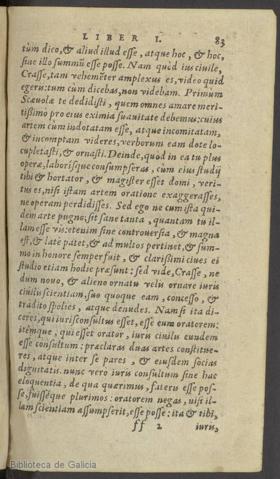 LIBER I. 83
tùm dico, & aliud illud esse, atque hoc, & hoc,
sine illo summũ esse posse. Nam quòd ius ciuile,
Crasse, tam vehemẽter amplexus es, video quid
egeris: tum cùm dicebas, non videbam. Primum
Scæuolæ te dedidisti, quem omnes amare meri-
tissimo pro eius eximia suauitate debemus: cuius
artem cùm indotatam esse, atque incomitatam,
& incomptam videres, verborum eam dote lo-
cupletasti, & ornasti. Deinde, quòd in ea tu plus
operæ, laborisque consumpseras, cùm eius studij
tibi & hortator, & magister esset domi, veri-
tus es, nisi istam artem oratione exaggerasses,
ne operam perdidisses. Sed ego ne cum ista qui-
dem arte pugno. sit sane tanta, quantam tu il-
lam esse vis: etenim sine controuersia, & magna
est, & latè patet, & ad multos pertinet, & sum-
mo in honore semper fuit, & clarissimi ciues ei
studio etiam hodie præsunt: sed vide, Crasse, ne
dum nouo, & alieno ornatu velis ornare iuris
ciuilis scientiam, suo quoque eam, concesso, &
tradito spolies, atque denudes. Nam si ita di-
ceres, qui iurisconsultus esset, esse eum oratorem:
itémque, qui esset orator, iuris ciuilis eundem
esse consultum: præclaras duas artes constitue-
res, atque inter se pares, & eiusdem socias
dignitatis. nunc vero iuris consultum sine hac
eloquentia, de qua quærimus, fateris esse pos-
se, fuissėque plurimos: oratorem negas, nisi il-
lam scientiam assumpserit, esse posse: ita & tibi,
ff 2 iuris,
Biblioteca de Galicia